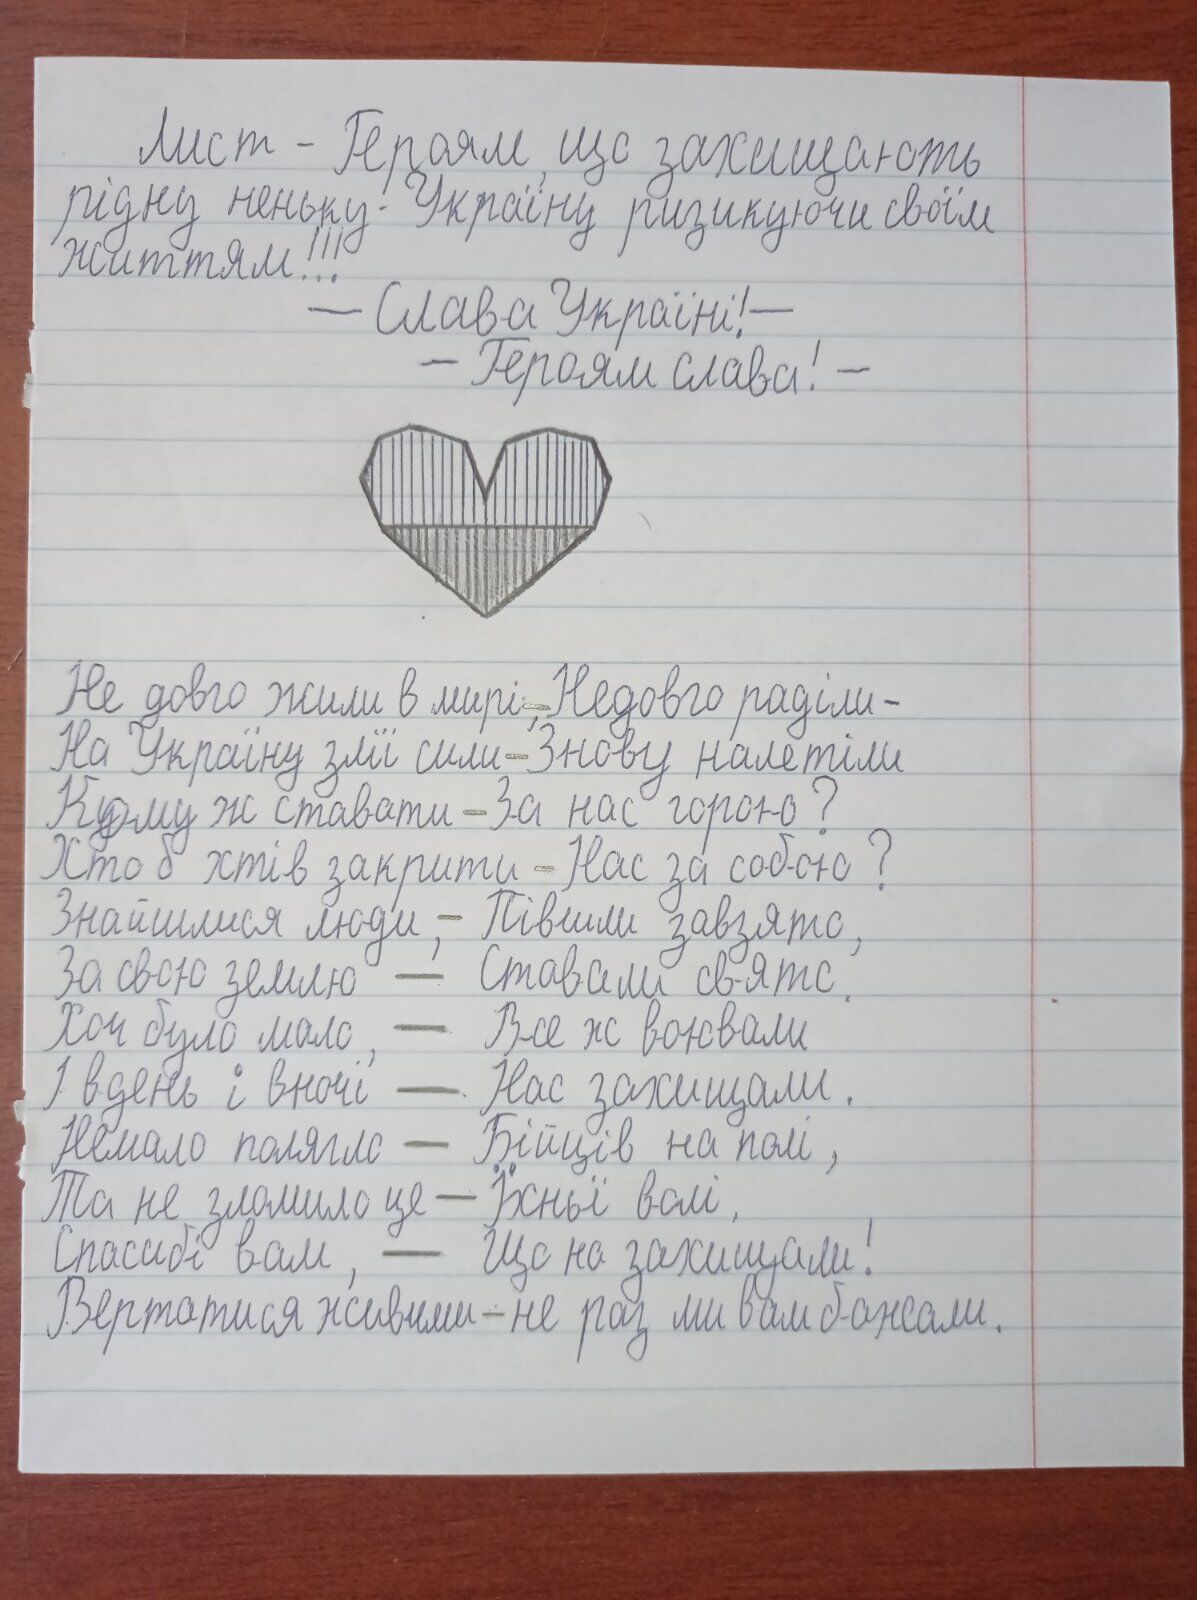 Лист - Героям, що захищають
рідну неньку - Україну ризикуючи своїм
життям!!!
— Слава Україні! —
— Героям слава! —
Не довго жили в мирі, - Недовго раділи -
На Україну злії сили - Знову налетіли
Кому ж ставати - За нас горою?
Хто б хтів закрити - Нас за собою?
Знайшлися люди, - Півшли завзято,
За свою землю — Ставали свято.
Хоч було мало, — Все ж воювали
І вдень і вночі — Нас захищали.
Немало полягло — Бійців на полі,
Та не зломило це — Їхньої волі,
Спасибі вам, — Що на захищали!
Вертатися живими - не раз ми вам бажали.